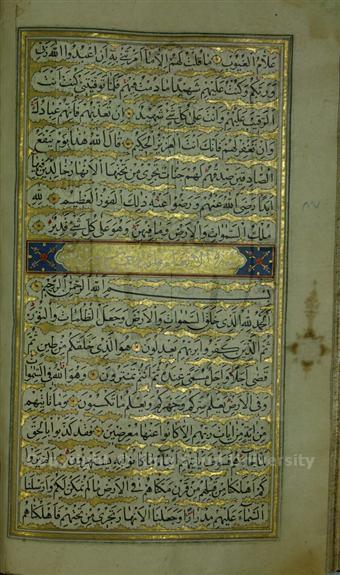 علام الغيوب ما قلت لهم الا ما امرتني به ان اعبدوا الله ربي
وربكم وكنت عليهم شهيدا ما دمت فيهم فلما توفيتني كنت انت
الرقيب عليهم وانت على كل شئ شهيد ان تعذبهم فانهم عبادك
وان تغفر لهم فانك انت العزيز الحكيم قال الله هذا يوم ينفع
الصادقين صدقهم لهم جنات تجرى من تحتها الانهار خالدين فيها
ابدا رضى الله عنهم ورضوا عنه ذلك الفوز العظيم لله
ملك السموات والارض وما فيهن وهو على كل شئ قدير
بسم الله الرحمن الرحيم
الحمد لله الذى خلق السموات والارض وجعل الظلمات والنور
ثم الذين كفروا بربهم يعدلون هو الذى خلقكم من طين ثم
قضى اجلا واجل مسمى عنده ثم انتم تمترون وهو الله فى السموات
وفى الارض يعلم سركم وجهركم ويعلم ما تكسبون وما تاتيهم
من اية من ايات ربهم الا كانوا عنها معرضين فقد كذبوا بالحق
لما جاءهم فسوف ياتيهم
كم اهلكنا من قبلهم من قرن مكناهم فى الارض ما لم نمكن لكم وارسلنا
السماء عليهم مدرارا وجعلنا الانهار تجرى من تحتهم فاهلكناهم